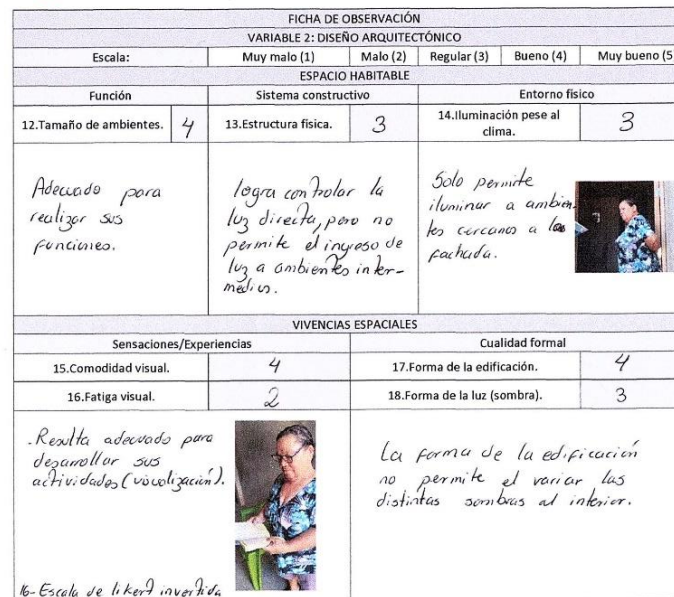 FICHA DE OBSERVACIÓN
VARIABLE 2: DISEÑO ARQUITECTÓNICO
Escala: Muy malo (1) Malo (2) Regular (3) Bueno (4) Muy bueno (5
ESPACIO HABITABLE
Función Sistema constructivo Entorno físico
12.Tamaño de ambientes. 4 13.Estructura física. 3 14.Iluminación pese al clima. 3
Adecuado para
realizar sus
funciones.
logra controlar la
luz directa, pero no
permite el ingreso de
luz a ambientes inter-
medios.
Solo permite
iluminar a ambien-
tes cercanos a la
fachada.
VIVENCIAS ESPACIALES
Sensaciones/Experiencias Cualidad formal
15.Comodidad visual. 4 17.Forma de la edificación. 4
16.Fatiga visual. 2 18.Forma de la luz (sombra). 3
.Resulta adecuado para
desarrollar sus
actividades (visualización).
16-Escala de likert invertida
La forma de la edificación
no permite el variar las
distintas sombras al interior.